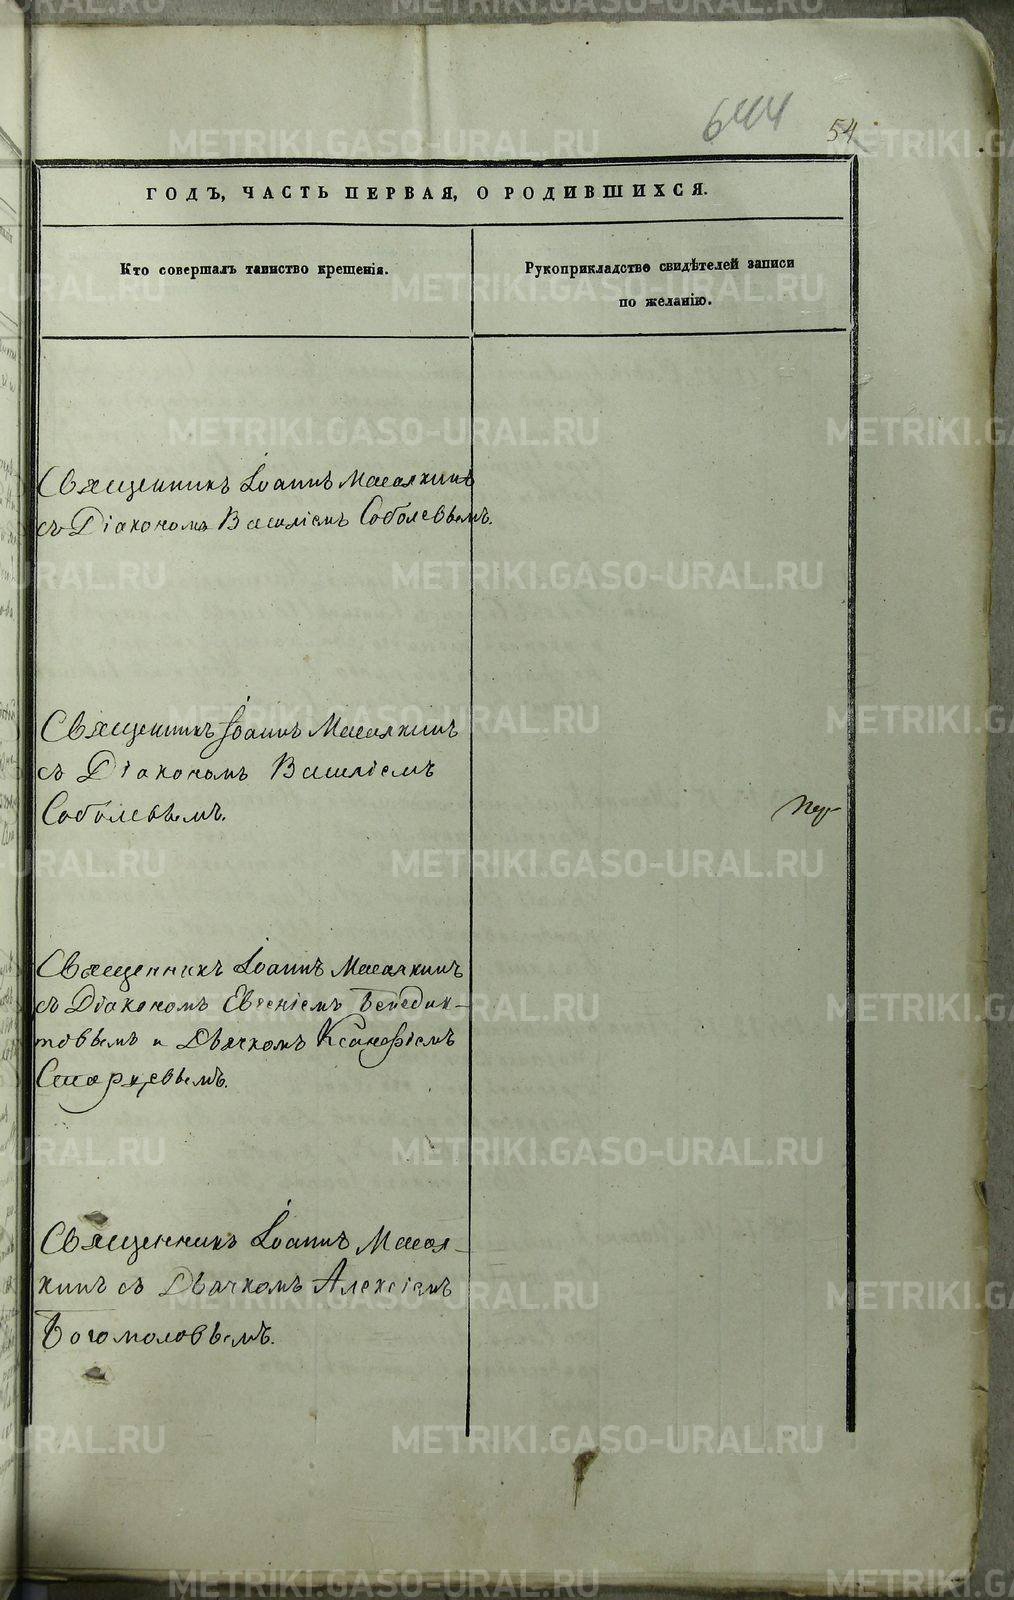 644
54.
ГОДЪ, ЧАСТЬ ПЕРВАЯ, О РОДИВШИХСЯ.
Кто совершалъ таинство крещенія.
Рукоприкладство свидѣтелей записи
по желанію.
Священникъ Іоаннъ Масалкинъ
съ Діакономъ Василіемъ Соболевымъ.
Священникъ Іоаннъ Масалкинъ
съ Діакономъ Василіемъ
Соболевымъ.
Священникъ Іоаннъ Масалкинъ
съ Діакономъ Евгеніемъ Бенедик-
товымъ и Дьячкомъ Ксанофіемъ
Старцевымъ.
Священникъ Іоаннъ Масал-
кинъ съ Дьячкомъ Алексіемъ
Богомоловымъ.
METRIKI.GASO-URAL.RU